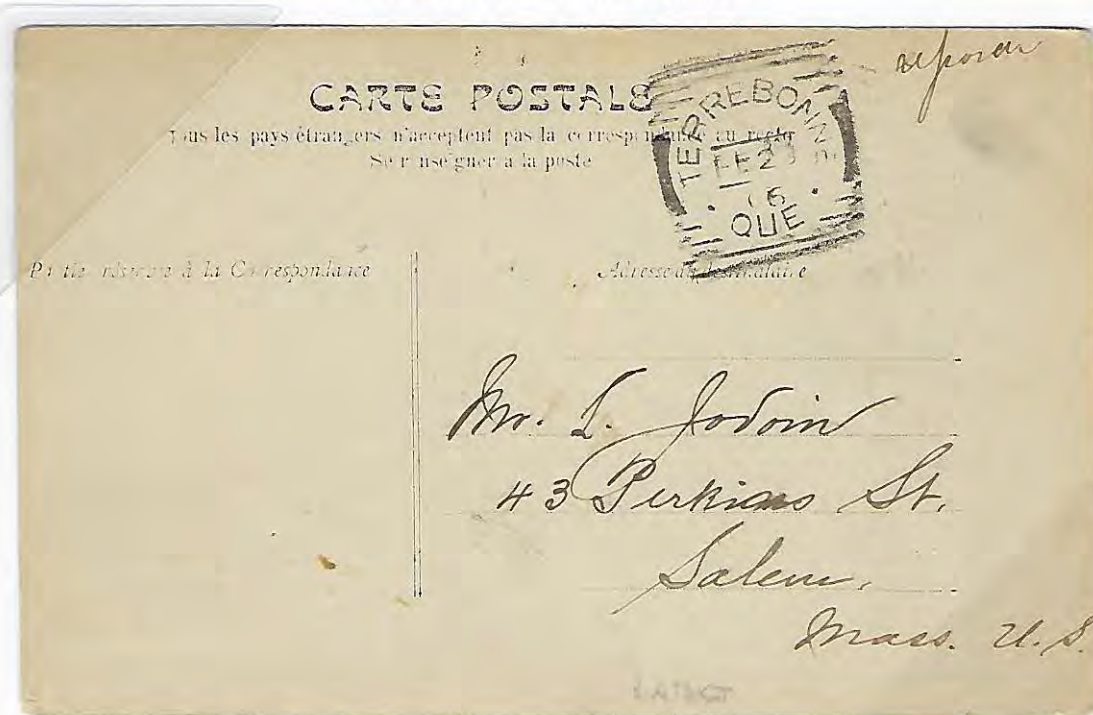 CARTE POSTALE
Tous les pays étrangers n'acceptent pas la correspondance au recto
Se renseigner à la poste
TERREBONNE
FE 23
06
QUE
Partie réservée à la Correspondance
Adresse du destinataire
Mr. L. Jodoin
43 Perkins St.
Salem,
Mass. U.S.